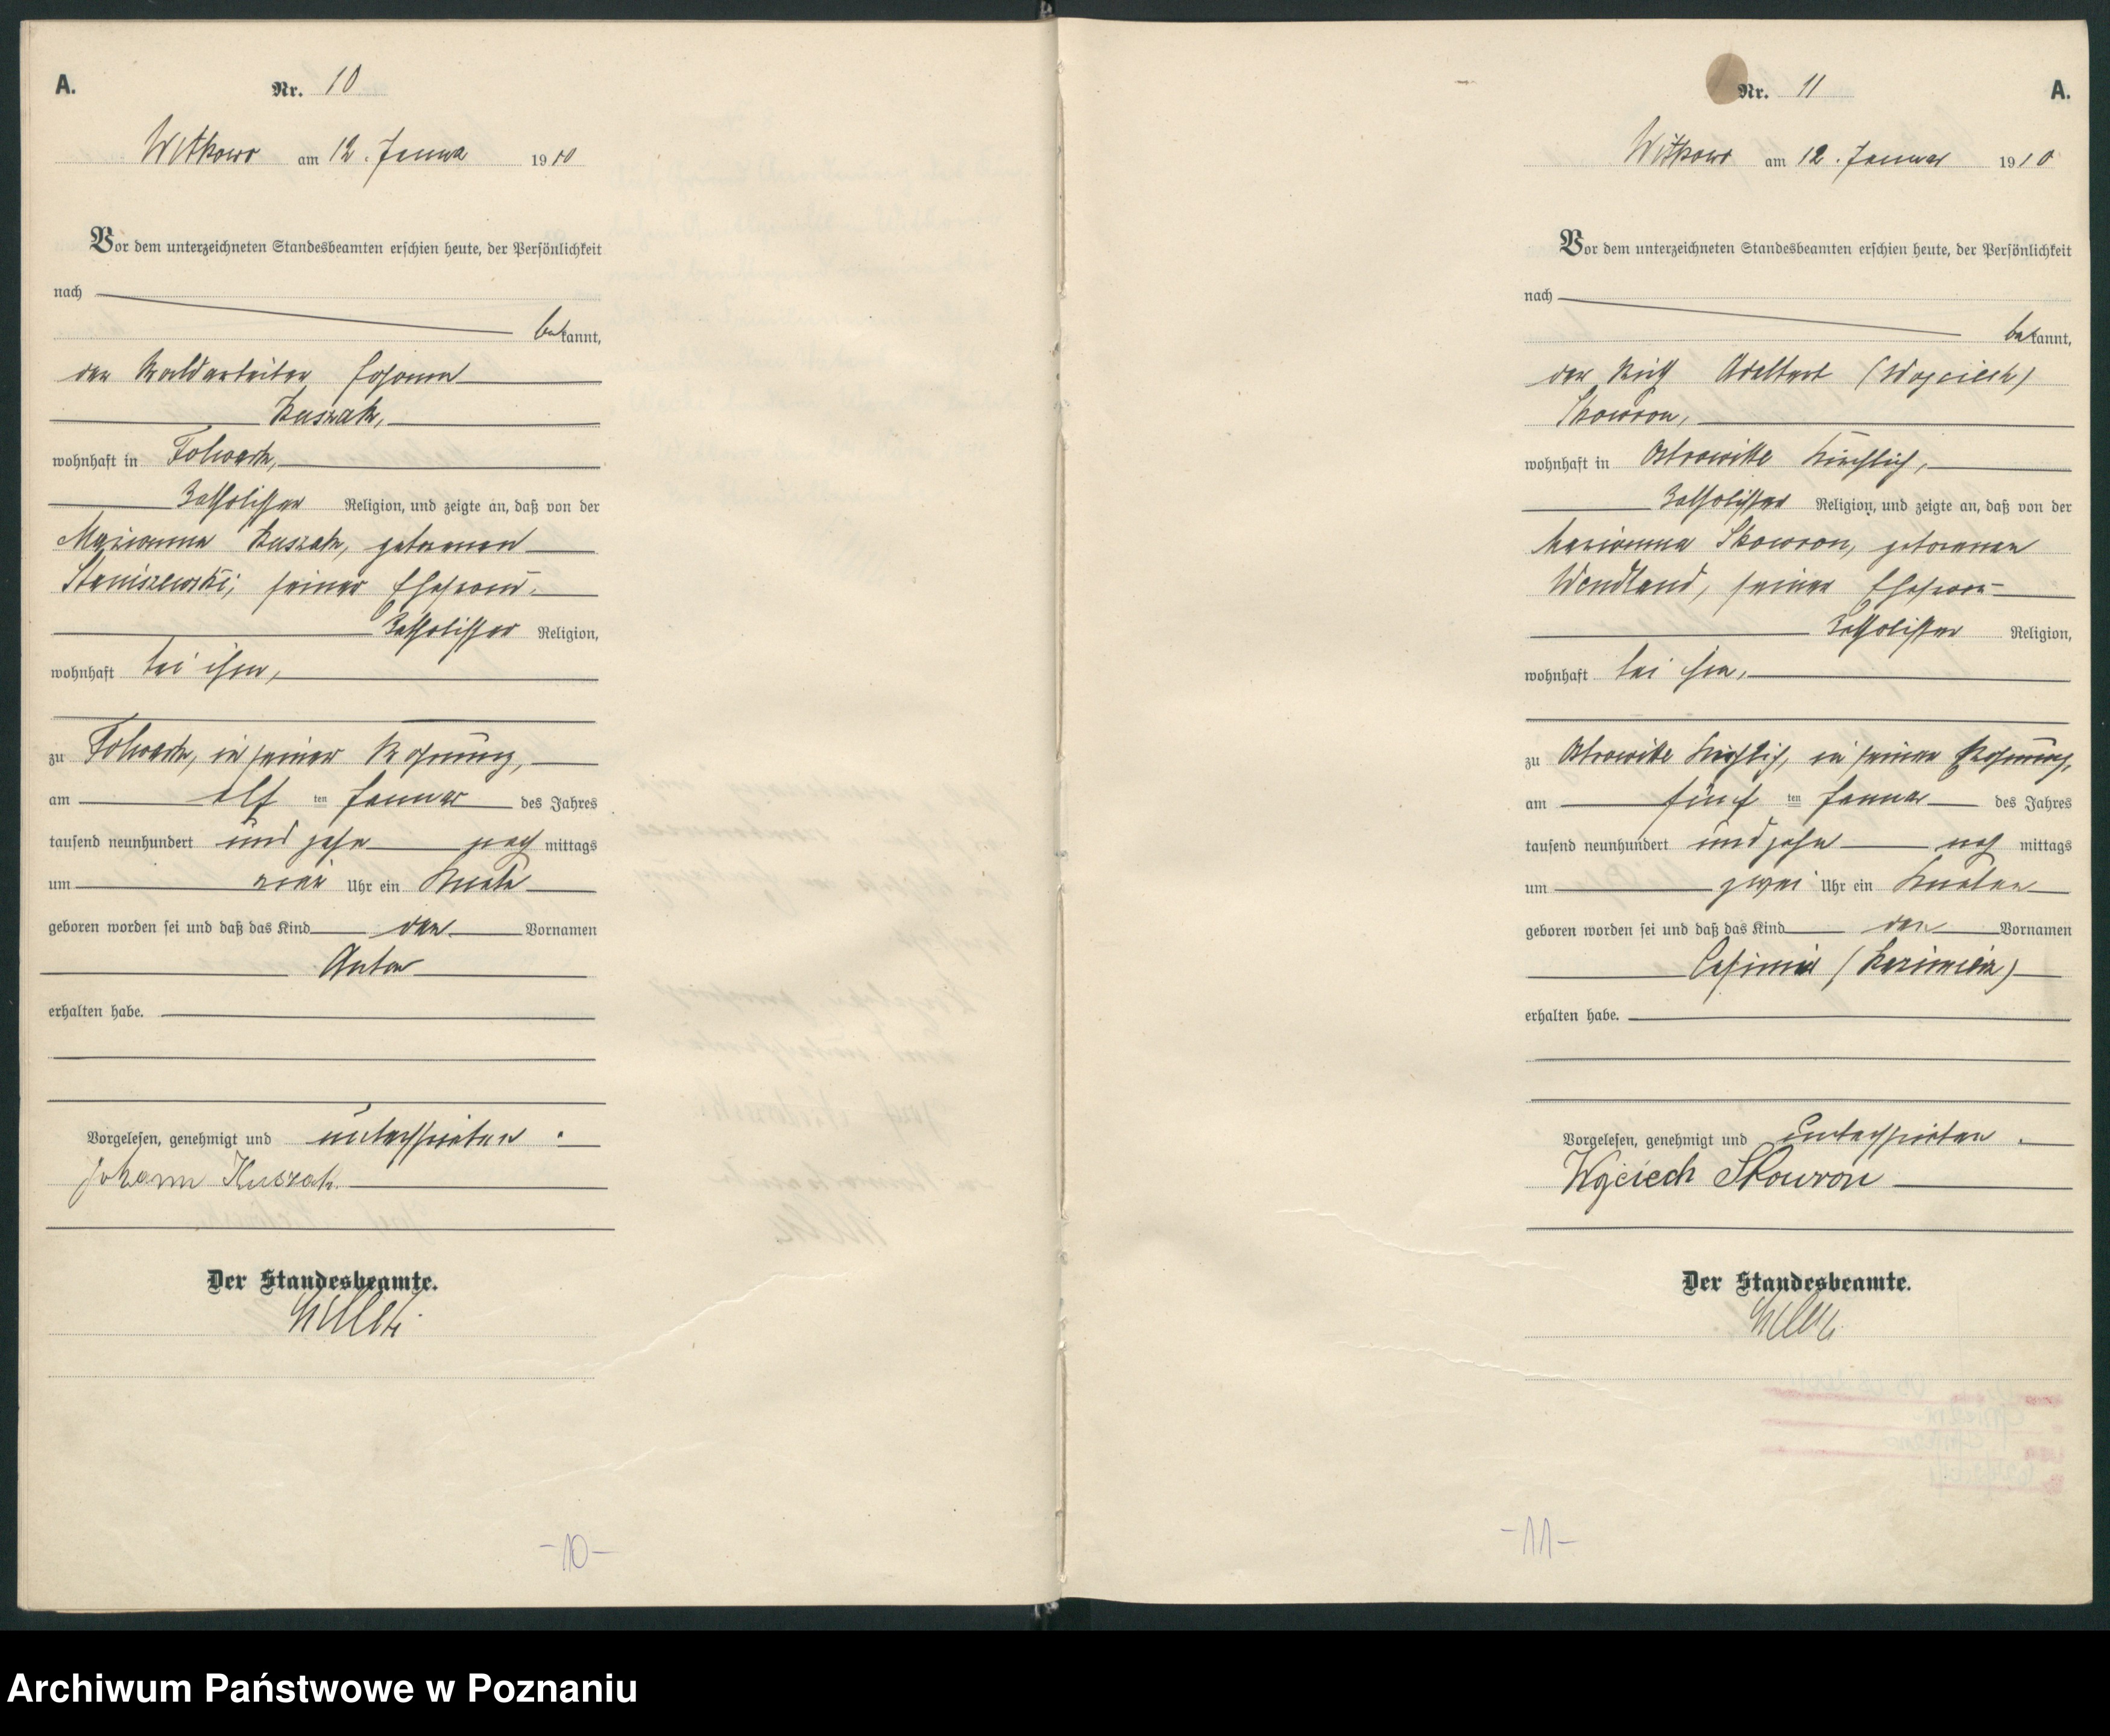 A.
Nr. 10
Witkowo am 12. Januar 1910
Vor dem unterzeichneten Standesbeamten erschien heute, der Persönlichkeit
nach
bekannt,
der Waldarbeiter Johann
Kuszak,
wohnhaft in Folwark,
katholischer Religion, und zeigte an, daß von der
Marianna Kuszak, geborenen
Staniszewski, seiner Ehefrau
katholischer Religion,
wohnhaft bei ihm,
zu Folwark, in seiner Wohnung,
am elf ten Januar des Jahres
tausend neunhundert und zehn nachmittags
um vier Uhr ein Knabe
geboren worden sei und daß das Kind den Vornamen
Anton
erhalten habe.
Vorgelesen, genehmigt und unterschrieben.
Johann Kuszak.
Der Standesbeamte.
-10-
Nr. 11
A.
Witkowo am 12. Januar 1910
Vor dem unterzeichneten Standesbeamten erschien heute, der Persönlichkeit
nach
bekannt,
der Adelbert (Wojciech)
Skowron,
wohnhaft in Ostrowitte kirchlich,
katholischer Religion, und zeigte an, daß von der
Marianna Skowron, geborenen
Wendland, seiner Ehefrau
katholischer Religion,
wohnhaft bei ihm,
zu Ostrowitte kirchlich, in seiner Wohnung,
am fünf ten Januar des Jahres
tausend neunhundert und zehn nach mittags
um zwei Uhr ein Knabe
geboren worden sei und daß das Kind den Vornamen
Casimir (Kazimierz)
erhalten habe.
Vorgelesen, genehmigt und unterschrieben.
Wojciech Skowron
Der Standesbeamte.
-11-
Archiwum Państwowe w Poznaniu